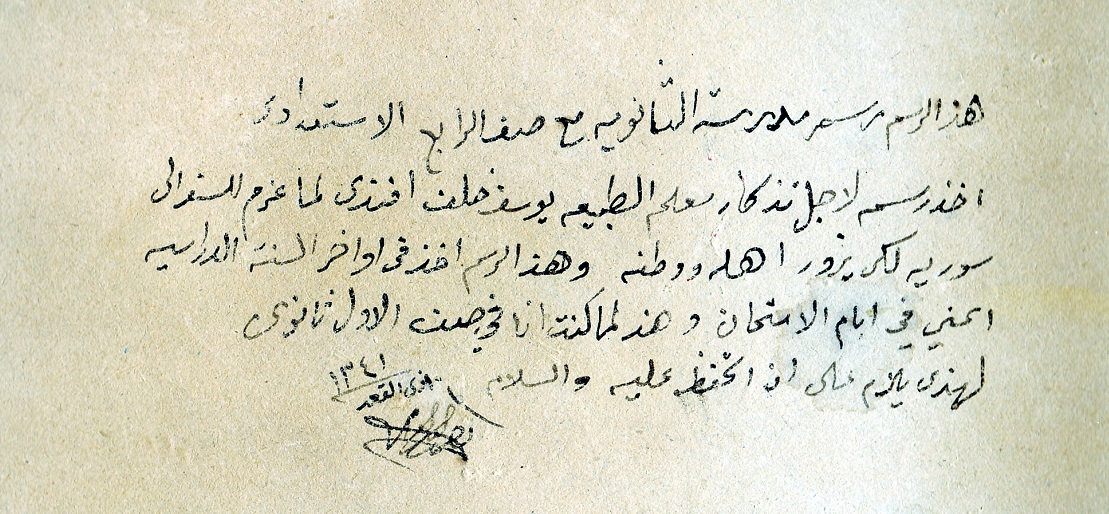 هذا الرسم رسم مدرسة الثانويه مع صف الرابع الاستعدادى
اخذ رسمه لاجل تذكار معلم الطبيعه يوسف خلف افندى لما عزم للسفر الى
سوريه لكى يزور اهله ووطنه وهذا الرسم اخذ فى اواخر السنة الدراسيه
اعني في ايام الامتحان وهذ لما كنت انا في صف الاول ثانوى
لهذى يلزم على ان اتحفظ عليه والسلام
ذى القعد ١٣٤١